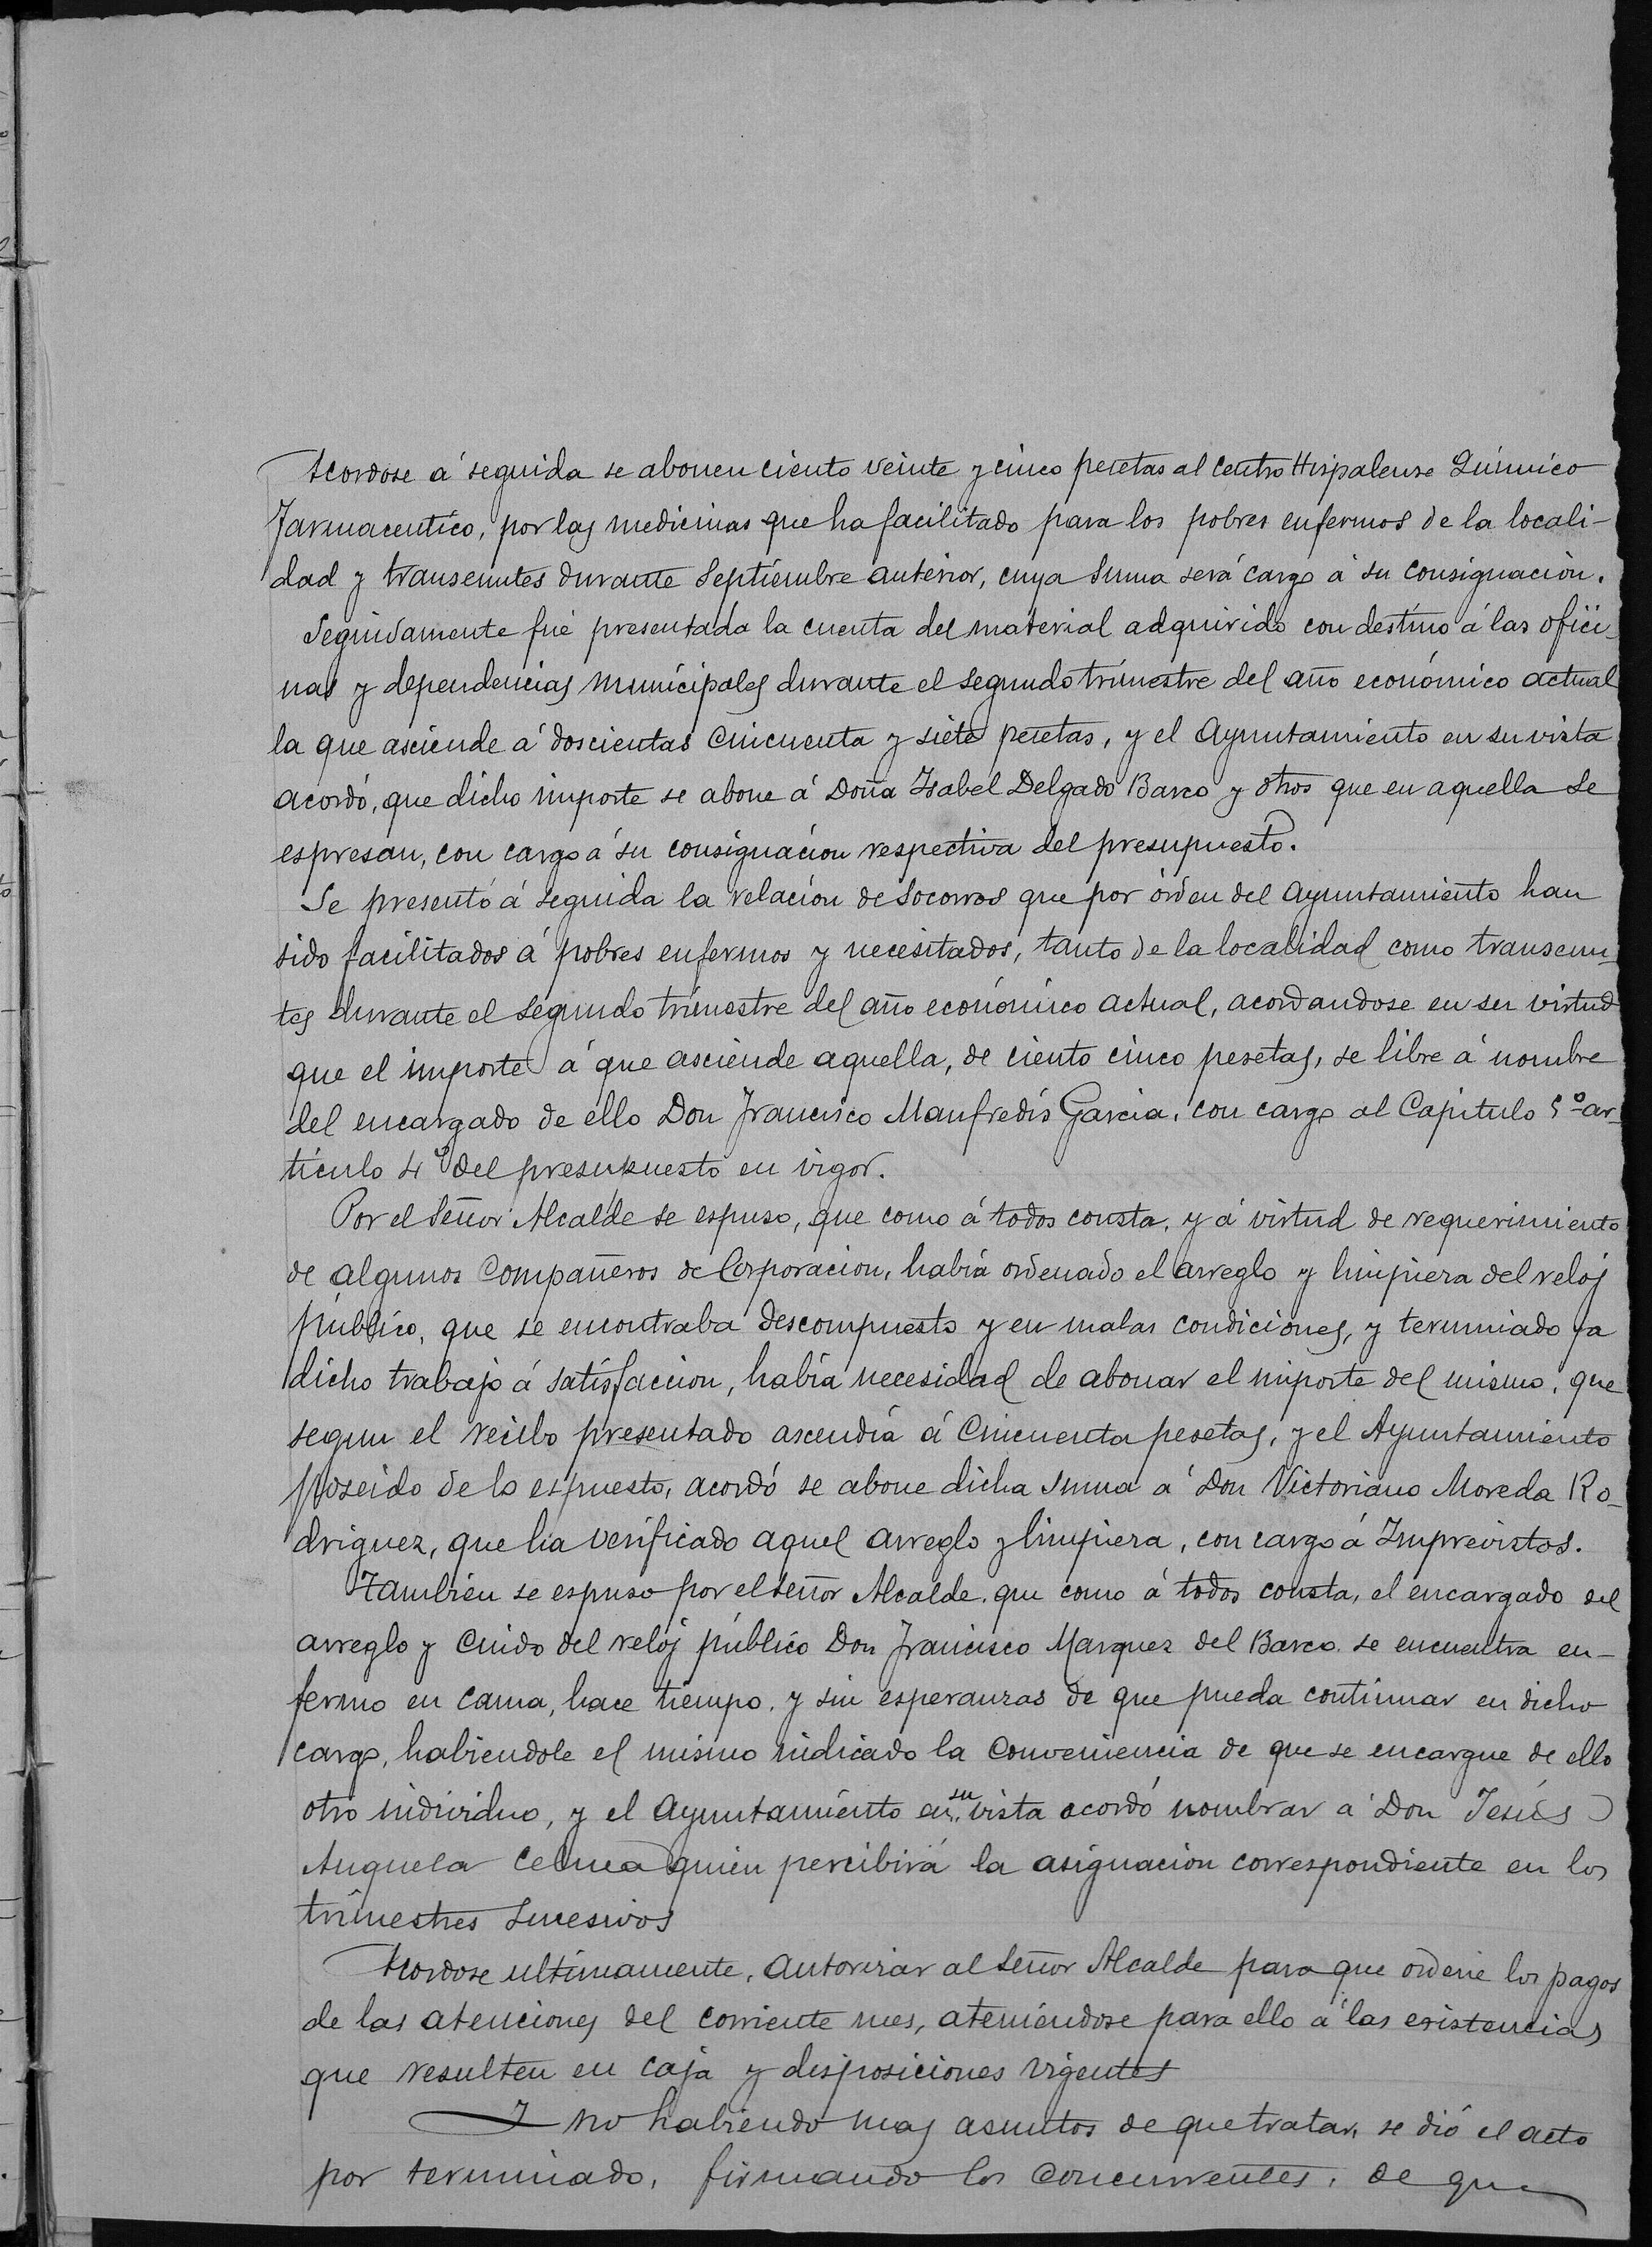 Acordose á seguida se abonen ciento veinte y cinco pesetas al centro Hispalense Químico
Farmaceutico, por las medicinas que ha facilitado para los pobres enfermos de la locali-
dad y transeuntes durante Septiembre anterior, cuya suma será cargo á su consignación.
Seguidamente fué presentada la cuenta del material adquirido con destino á las ofici-
nas y dependencias municipales durante el segundo trimestre del año económico actual
la que asciende á doscientas cincuenta y siete pesetas, y el Ayuntamiento en su vista
acordó, que dicho importe se abone á Doña Isabel Delgado Barco y otros que en aquella se
espresan, con cargo á su consignación respectiva del presupuesto.
Se presentó á seguida la relación de socorros que por órden del Ayuntamiento han
sido facilitados á pobres enfermos y necesitados, tanto de la localidad como transeun-
tes durante el segundo trimestre del año económico actual, acordandose en su virtud
que el importe á que asciende aquella, de ciento cinco pesetas, se libre á nombre
del encargado de ello Don Francisco Manfredis Garcia, con cargo al Capitulo 5º ar-
ticulo 4º del presupuesto en vigor.
Por el Señor Alcalde se espuso, que como á todos consta, y á virtud de requerimiento
de algunos Compañeros de Corporacion, habia ordenado el arreglo y limpieza del reloj
público, que se encontraba descompuesto y en malas condiciones, y terminado ya
dicho trabajo á satisfaccion, había necesidad de abonar el importe del mismo, que
segun el recibo presentado ascendía á Cincuenta pesetas, y el Ayuntamiento
poseido de lo espuesto, acordó se abone dicha suma á Don Victoriano Moreda Ro-
driguez, que ha verificado aquel arreglo y limpieza, con cargo á Imprevistos.
Tambien se espuso por el Señor Alcalde, que como á todos consta, el encargado del
arreglo y cuido del reloj público Don Francisco Marquez del Barco se encuentra en-
fermo en cama, hace tiempo, y sin esperanzas de que pueda continuar en dicho
cargo, habiendole el mismo indicado la conveniencia de que se encargue de ello
otro individuo, y el Ayuntamiento en su vista acordó nombrar á Don Jesús
quien percibirá la asignacion correspondiente en los
trimestres sucesivos
Acordose ultimamente, autorizar al Señor Alcalde para que ordene los pagos
de las atenciones del corriente mes, ateniéndose para ello á las existencias
que resulten en caja y disposiciones vigentes
Y no habiendo mas asuntos de que tratar, se dió el acto
por terminado, firmando los concurrentes, de que